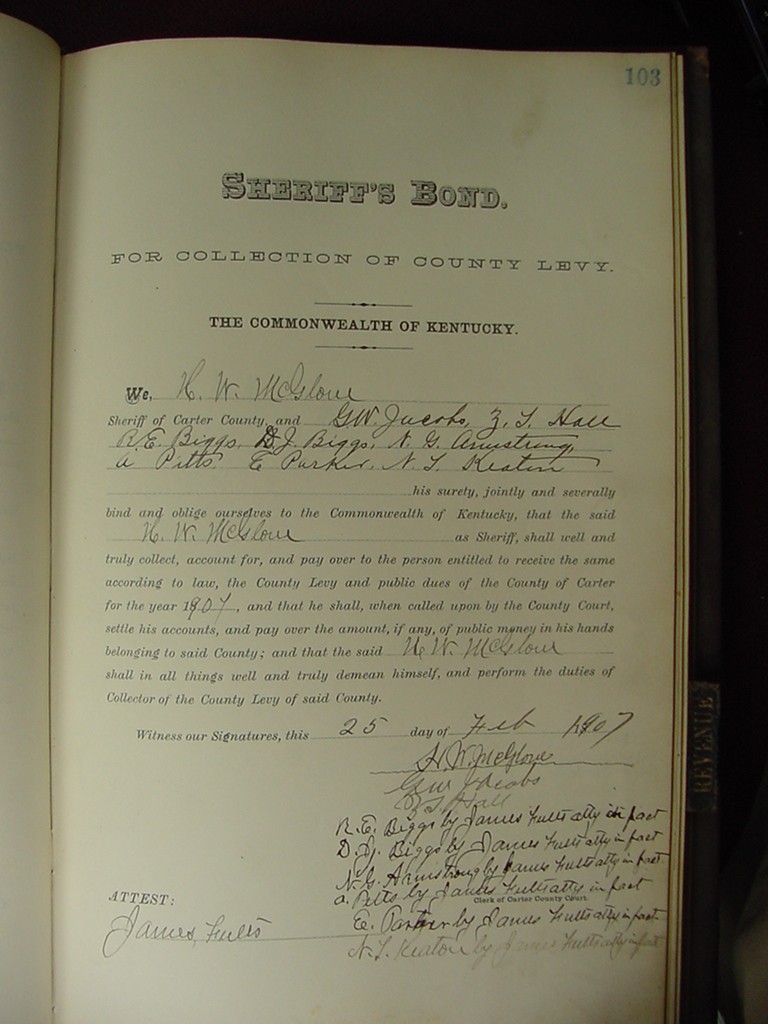 103
SHERIFF'S BOND.
FOR COLLECTION OF COUNTY LEVY.
THE COMMONWEALTH OF KENTUCKY.
We, H. W. McGlone
Sheriff of Carter County, and G W. Jacobs, Z. T. Hall
R. E. Biggs, D. J. Biggs, N. G. Armstrong,
A Pitts E Parker, N. T. Keaton
his surety, jointly and severally
bind and oblige ourselves to the Commonwealth of Kentucky, that the said
H. W. McGlone as Sheriff, shall well and
truly collect, account for, and pay over to the person entitled to receive the same
according to law, the County Levy and public dues of the County of Carter
for the year 1907, and that he shall, when called upon by the County Court,
settle his accounts, and pay over the amount, if any, of public money in his hands
belonging to said County; and that the said H. W. McGlone
shall in all things well and truly demean himself, and perform the duties of
Collector of the County Levy of said County.
Witness our Signatures, this 25 day of Feb 1907
H. W. McGlone
G W Jacobs
Z. T. Hall
R. E. Biggs by James Fults atty in fact
D. J. Biggs by James Fults atty in fact
N. G. Armstrong by James Fults atty in fact
A. Pitts by James Fults atty in fact
ATTEST:
Clerk of Carter County Court.
E. Parker by James Fults atty in fact
James Fults
N. T. Keaton by James Fults atty in fact
REVENUE